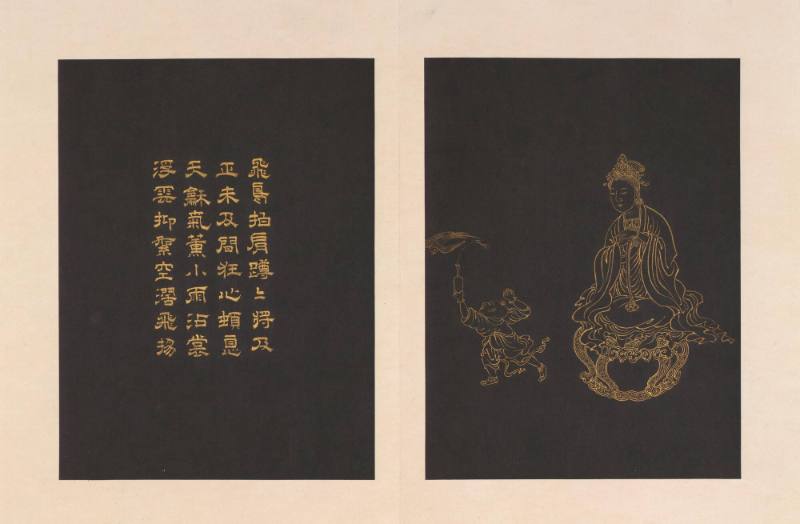 飛鳥拍肩蹲〻將及
正未及間狂心頓息
天龢氣薰小雨沾裳
浮雲抑絮空溼飛揚